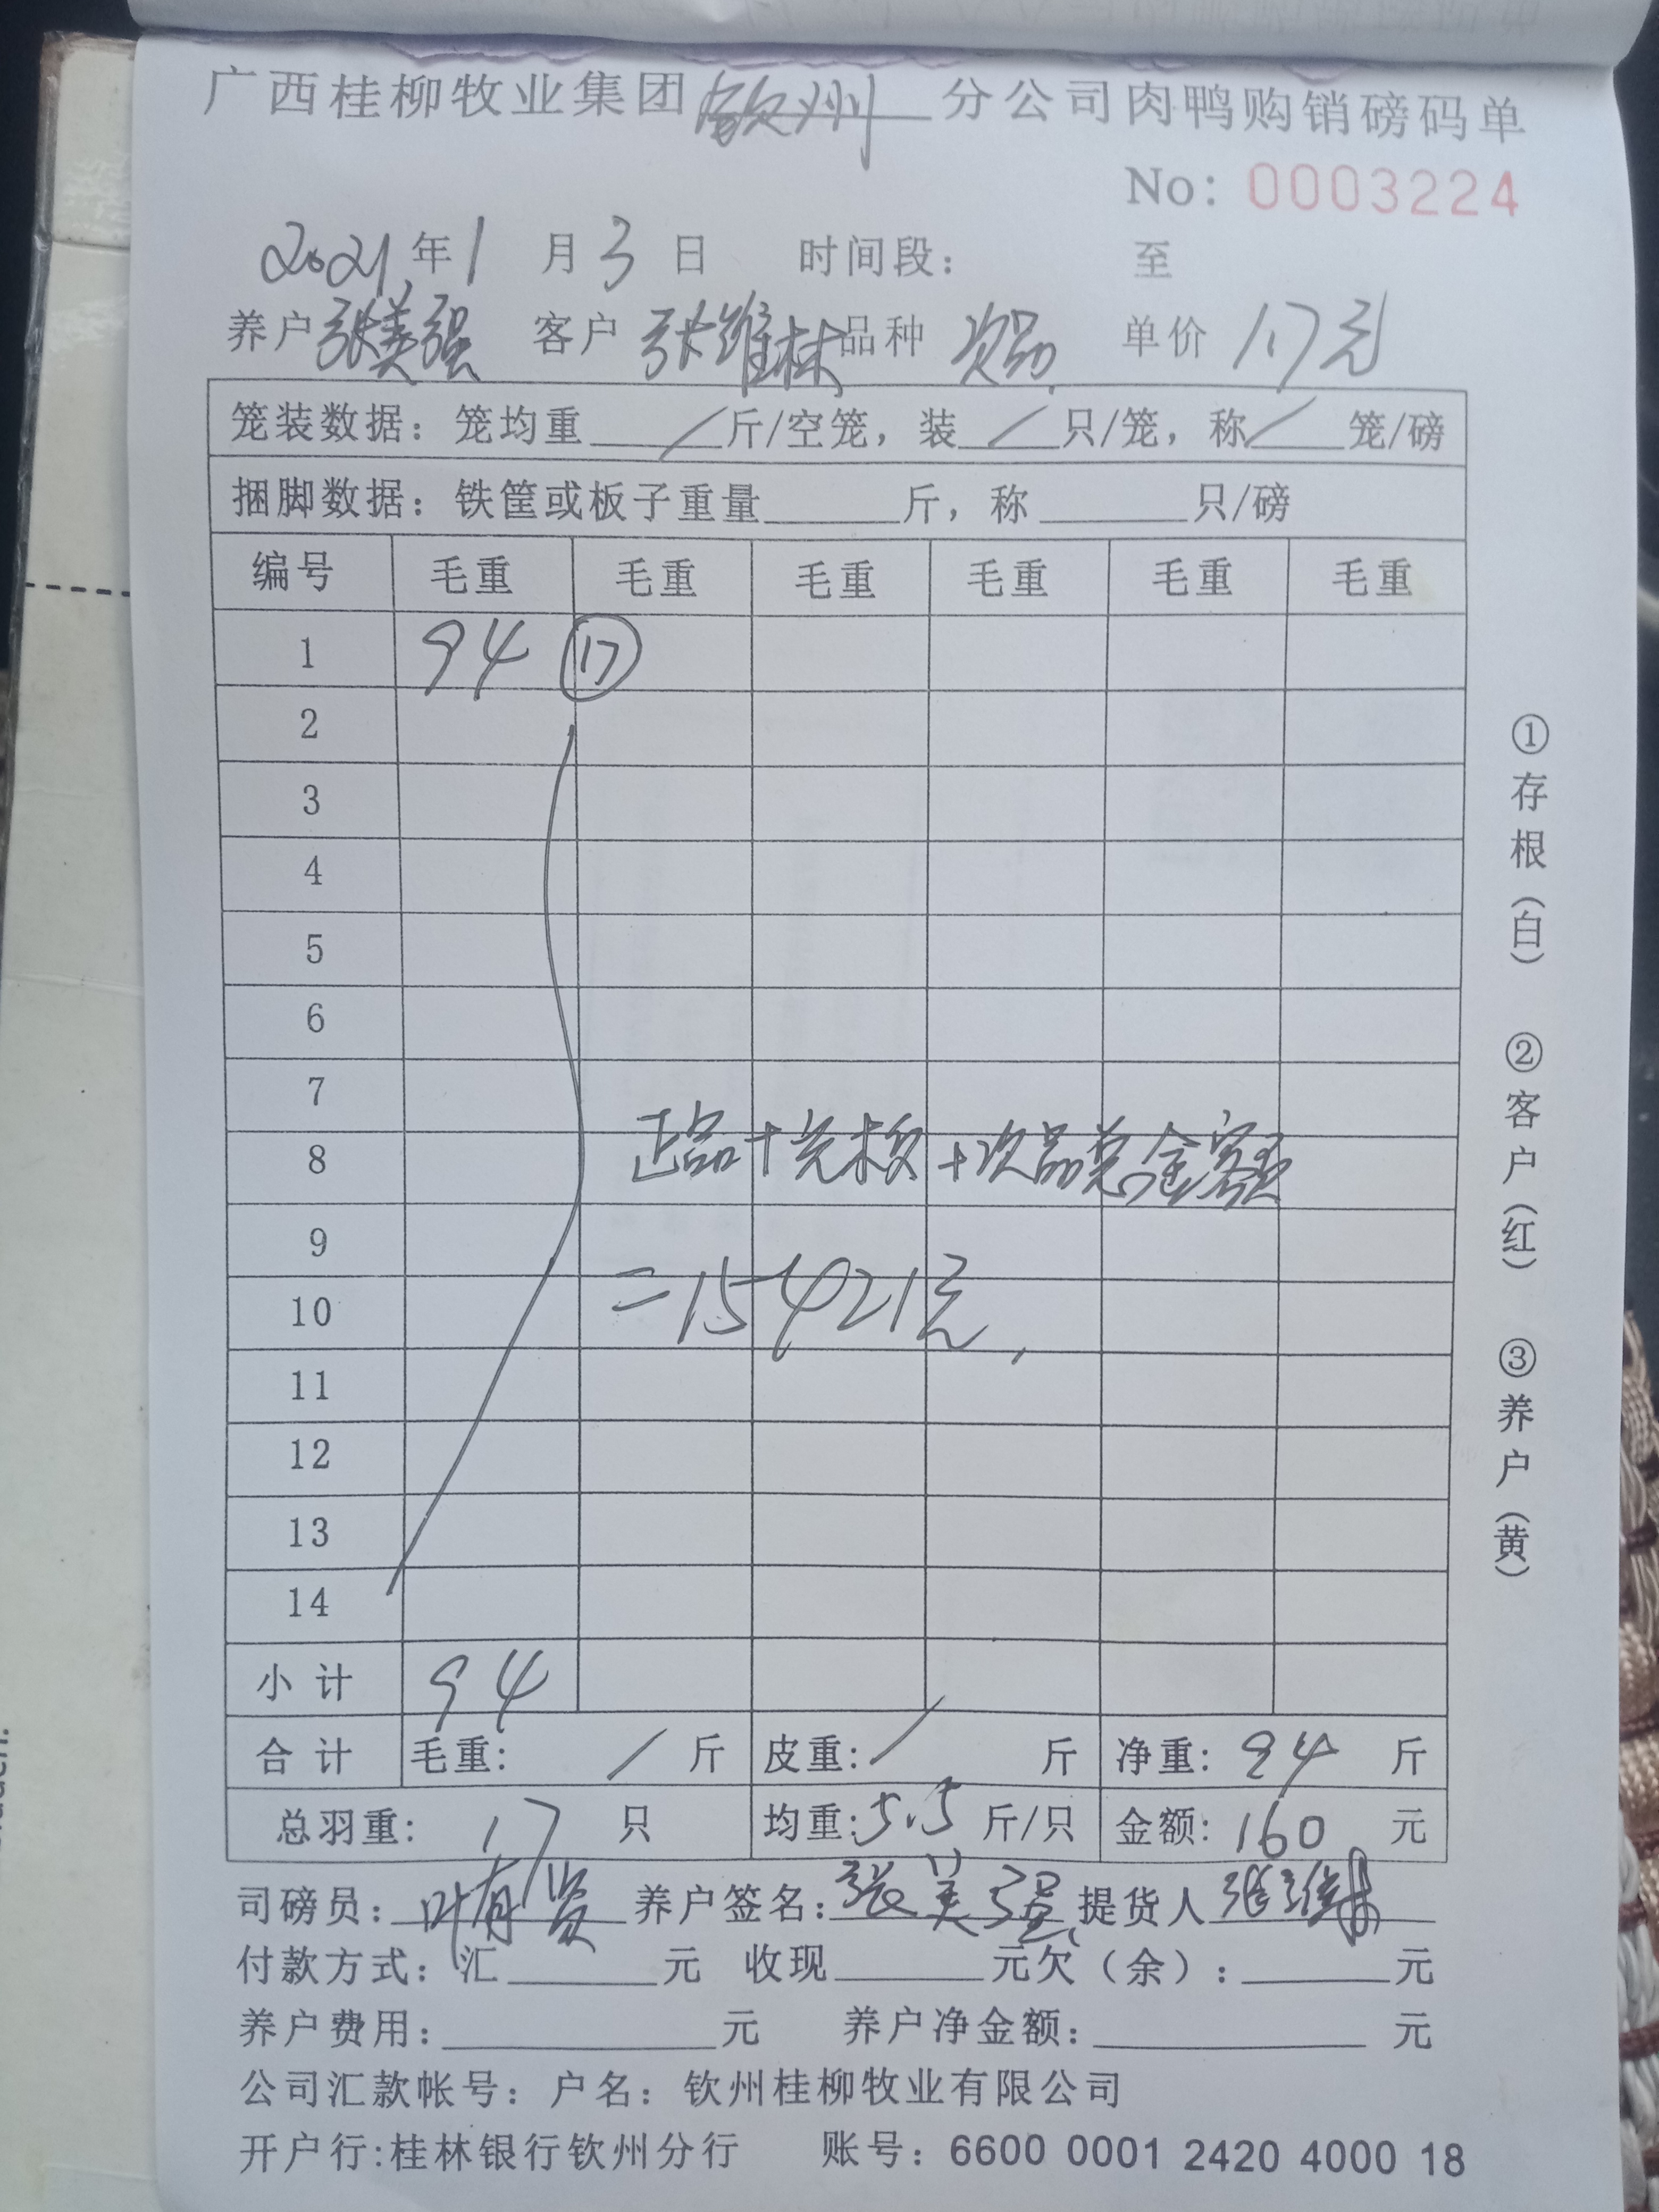 广西桂柳牧业集团钦州分公司肉鸭购销磅码单
No: 0003224
2021年1月3日 时间段: 至
养户张美强 客户张维林品种次品 单价1.7元
笼装数据: 笼均重/斤/空笼, 装/只/笼, 称/笼/磅
捆脚数据: 铁筐或板子重量____斤, 称____只/磅
编号 毛重 毛重 毛重 毛重 毛重 毛重
1 94 ⑰
2
3
4
5
6
7
8 正品+光木板+次品总金额
9
10 =15421元
11
12
13
14
小计 94
合计 毛重: / 斤 皮重: / 斤 净重: 94 斤
总羽重: 17 只 均重: 5.5 斤/只 金额: 160 元
司磅员: 叶有贤 养户签名: 张美强 提货人 张维林
付款方式: 汇____元 收现____元欠(余): ____元
养户费用: ____元 养户净金额: ____元
公司汇款帐号: 户名: 钦州桂柳牧业有限公司
开户行:桂林银行钦州分行 账号: 6600 0001 2420 4000 18
①存根(白) ②客户(红) ③养户(黄)